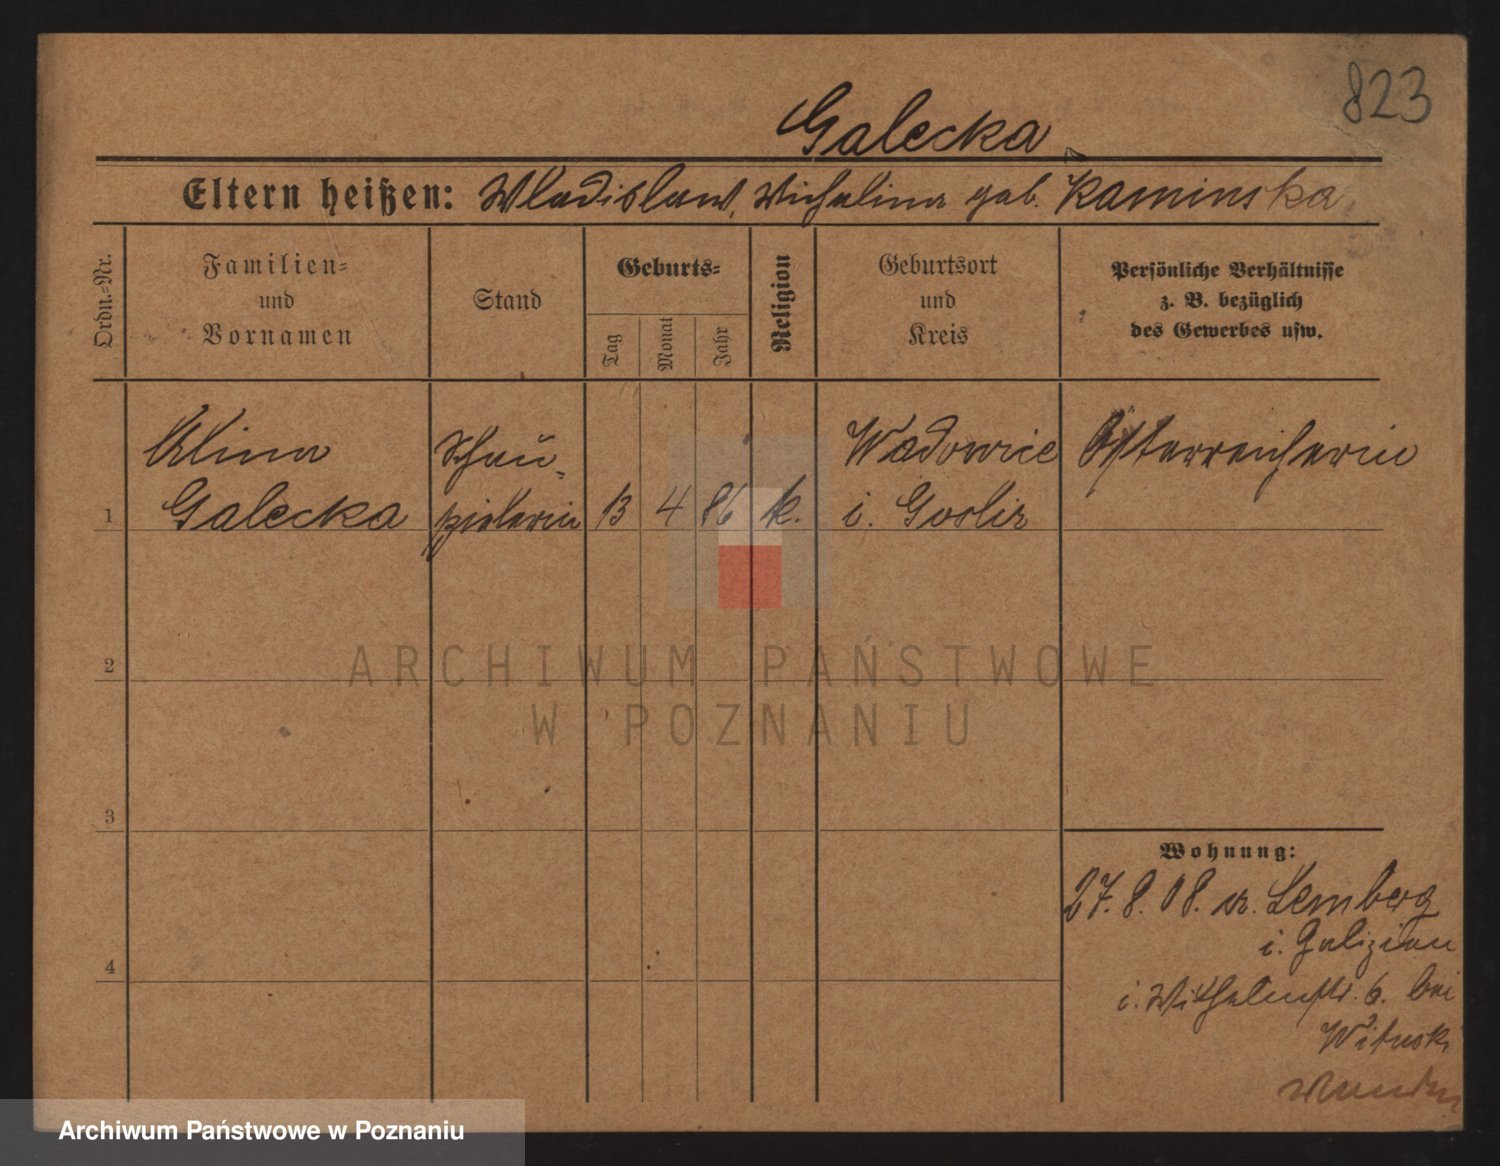 823
Galecka
Eltern heißen: Wladislaw, Michalina geb. Kaminska
Ordn.-Nr.
Familien-
und
Vornamen
Stand
Geburts-
Tag
Monat
Jahr
Religion
Geburtsort
und
Kreis
Persönliche Verhältnisse
z. B. bezüglich
des Gewerbes usw.
Alina
Galecka
Schau-
spielerin
1
13 4 86 k.
Wadowice
i. Galiz
Österreicherin
2
ARCHIWUM PAŃSTWOWE
W POZNANIU
3
Wohnung:
27. 8. 08. v. Lemberg
i. Galizien
i. Wilhelmstr. 6. bei
Wituski
4
Archiwum Państwowe w Poznaniu